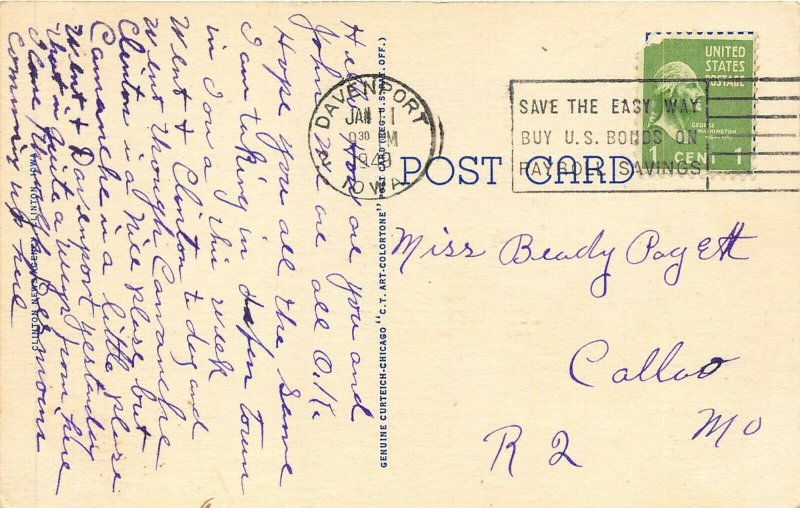 Hello How are you and
John. We are all O.K.
Hope you all the same
I am taking in town
in Iowa this week
Went to Clinton to day and
Went through Camanche
Clinton is a nice place but
Camanche is a little place
Went to Davenport yesterday
that is quite a ways from here
I came through Des moins
coming up here
CLINTON
GENUINE CURTEICH-CHICAGO "C.T. ART-COLORTONE" POST CARD (REG. U.S. PAT. OFF.)
DAVENPORT
JAN 1
30 M
1949
IOWA
SAVE THE EASY WAY
BUY U.S. BONDS ON
PAYROLL SAVINGS
UNITED
STATES
POSTAGE
GEORGE
WASHINGTON
CENT 1
POST CARD
Miss Beady Pagett
Callao
R 2 Mo